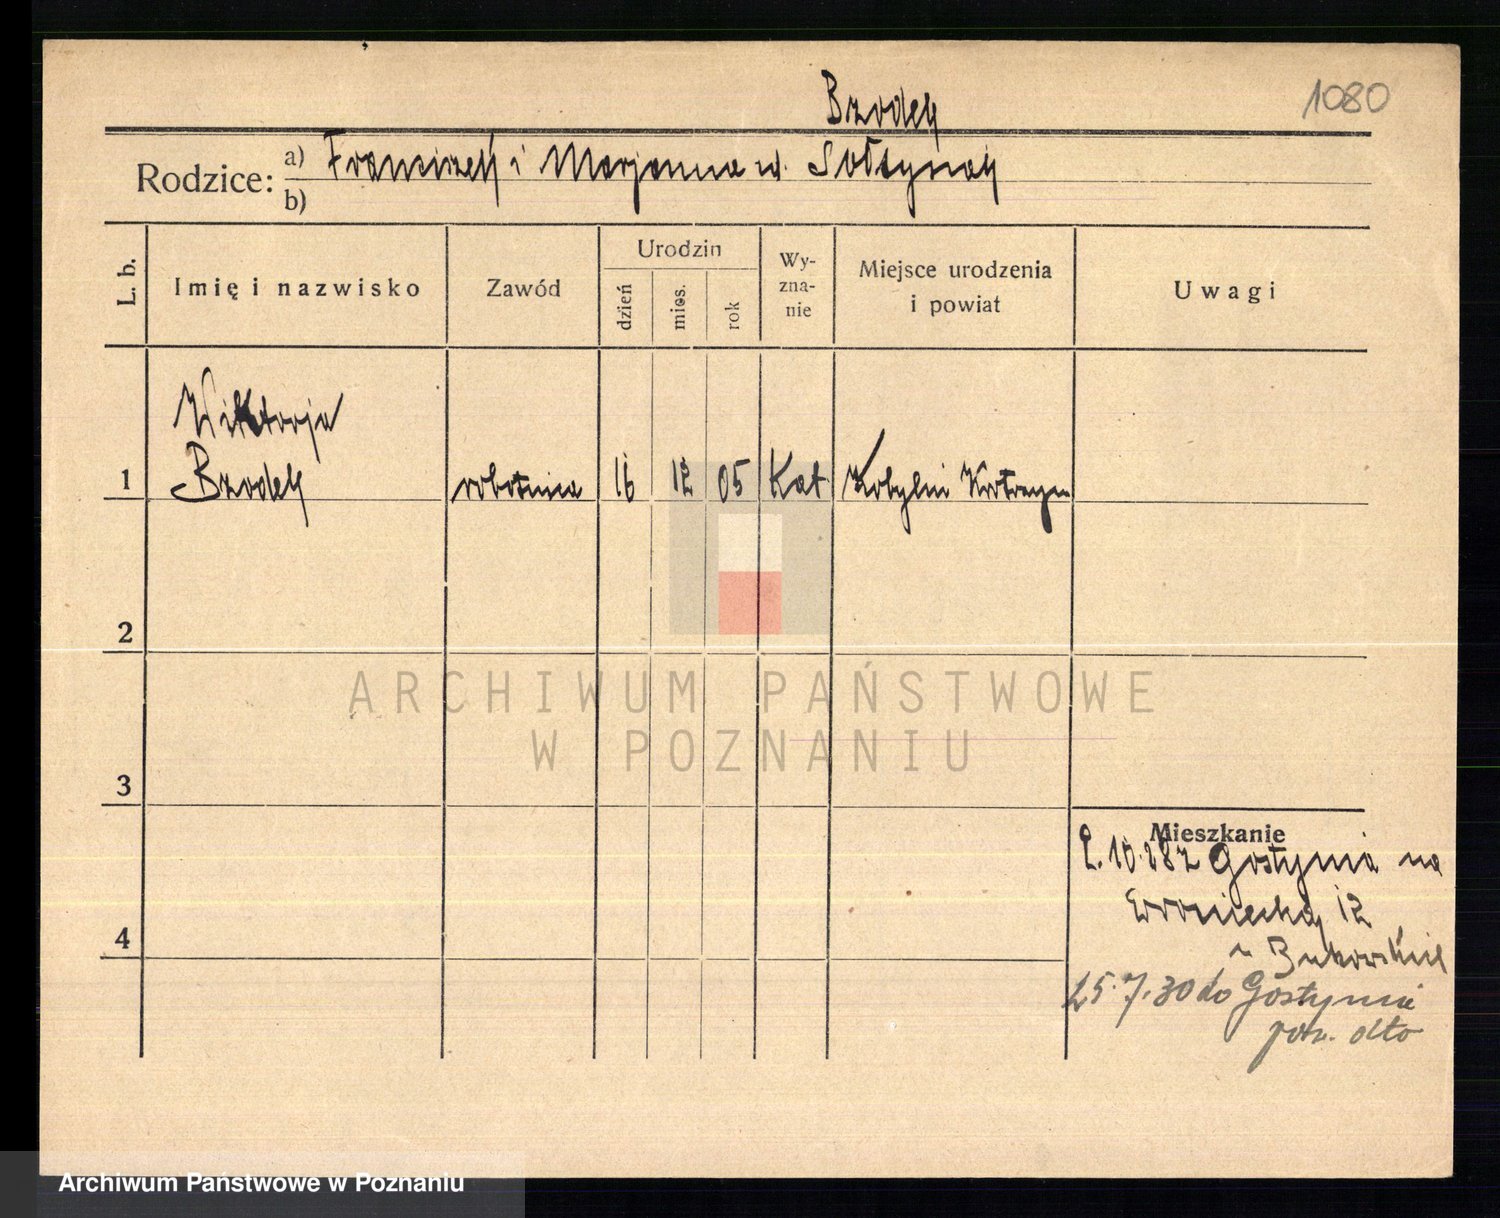 Brodek
1080
Rodzice: a) Franciszek i Marjanna ur. Sołtysiak
b)
L. b.
Imię i nazwisko
Zawód
Urodzin
dzień
mies.
rok
Wy-
zna-
nie
Miejsce urodzenia
i powiat
Uwagi
Wiktorja
1 Brodek robotnica 16 12 05 Kat Kobylin Krotoszyn
2
3
4
Mieszkanie
2.10.28 z Gostynia na
12
u
25.7.30 do Gostynia
pow. dto
ARCHIWUM PAŃSTWOWE
W POZNANIU
Archiwum Państwowe w Poznaniu